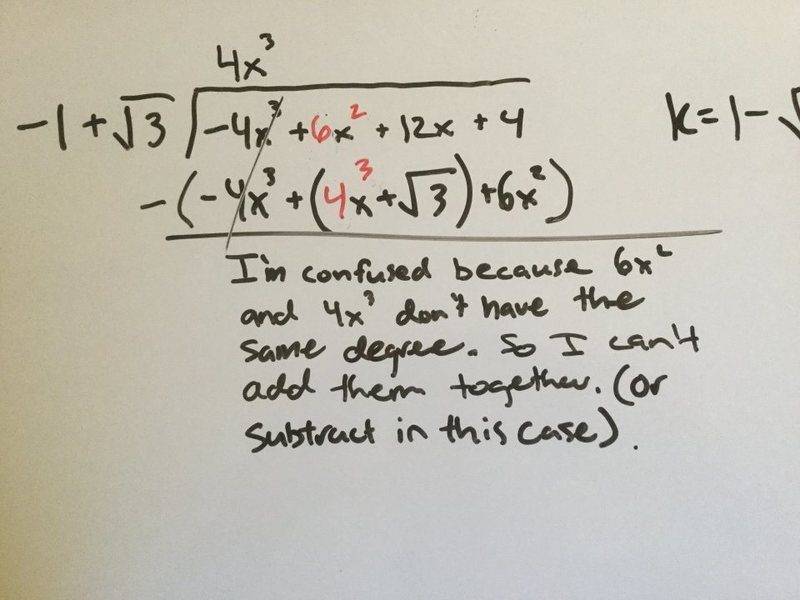 4x³
-1 + √3 √-4x³ + 6x² + 12x + 4
k = 1 - √
-(-4x³ + (4x³ + √3) + 6x²)
I'm confused because 6x²
and 4x³ don't have the
same degree. So I can't
add them together. (or
subtract in this case).